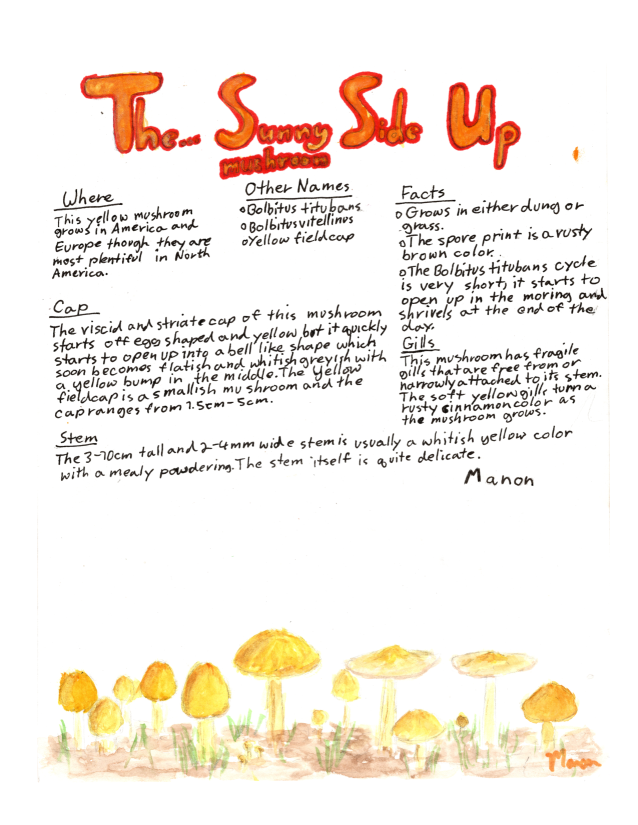 The... Sunny Side Up
mushroom
Where
This yellow mushroom
grows in America and
Europe though they are
most plentiful in North
America.
Other Names
Bolbitus titubans
Bolbitus vitellinus
Yellow fieldcap
Facts
Grows in either dung or
grass.
The spore print is a rusty
brown color.
The Bolbitus titubans cycle
is very short, it starts to
open up in the moring and
shrivels at the end of the
day.
Cap
The viscid and striate cap of this mushroom
starts off egg shaped and yellow but it quickly
starts to open up into a bell like shape which
soon becomes flatish and whitish greyish with
a yellow bump in the middle. The yellow
fieldcap is a smallish mushroom and the
cap ranges from 1.5cm-5cm.
Gills
This mushroom has fragile
gills that are free from or
narrowly attached to its stem.
The soft yellow gills turn a
rusty cinnamon color as
the mushroom grows.
Stem
The 3-10cm tall and 2-4mm wide stem is usually a whitish yellow color
with a mealy powdering. The stem itself is quite delicate.
Manon
Manon